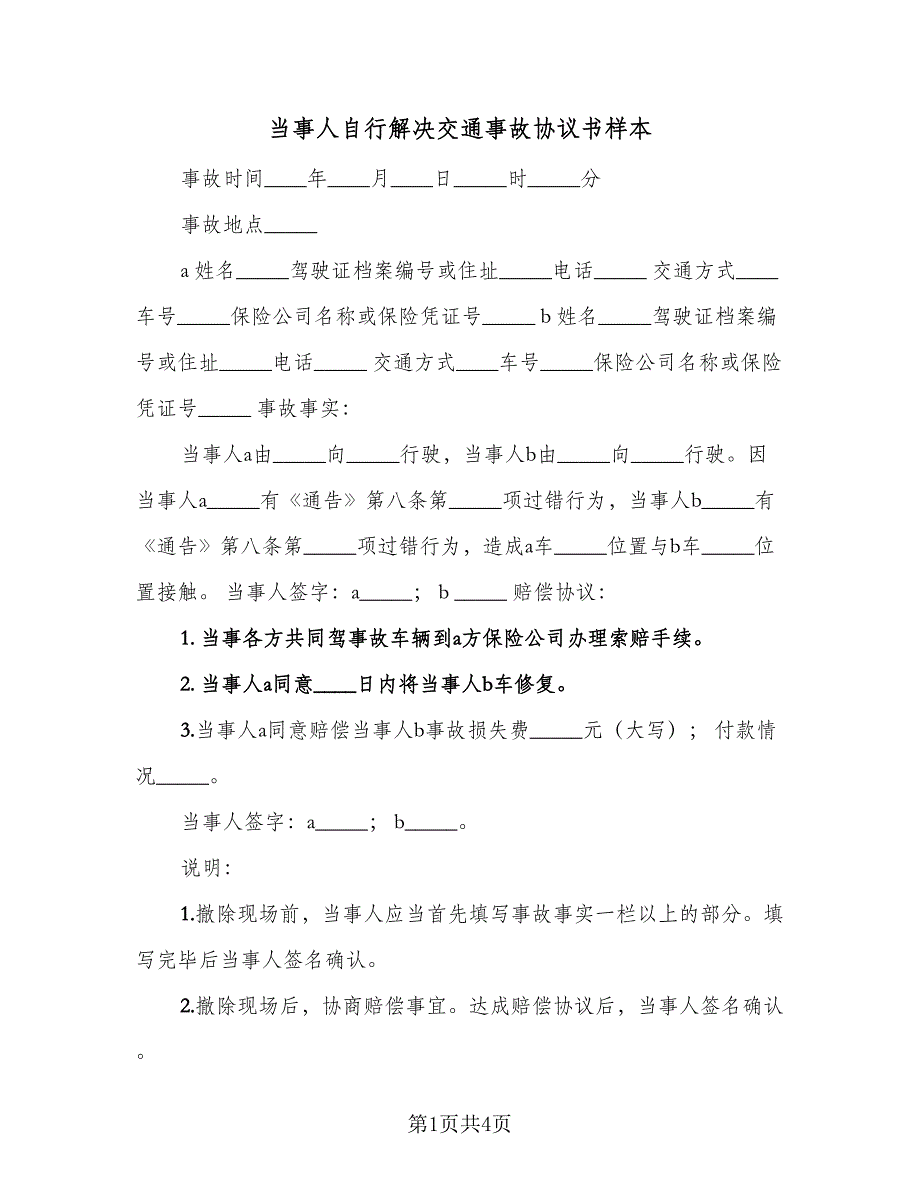 当事人自行解决交通事故协议书样本
事故时间____年____月____日_____时_____分
事故地点_____
a 姓名_____驾驶证档案编号或住址_____电话_____ 交通方式____
车号_____保险公司名称或保险凭证号_____ b 姓名_____驾驶证档案编
号或住址_____电话_____ 交通方式____车号_____保险公司名称或保险
凭证号_____ 事故事实：
当事人a由_____向_____行驶，当事人b由_____向_____行驶。因
当事人a_____有《通告》第八条第_____项过错行为，当事人b_____有
《通告》第八条第_____项过错行为，造成a车_____位置与b车_____位
置接触。 当事人签字：a_____； b _____ 赔偿协议：
1. 当事各方共同驾事故车辆到a方保险公司办理索赔手续。
2. 当事人a同意____日内将当事人b车修复。
3.当事人a同意赔偿当事人b事故损失费_____元（大写）； 付款情
况_____。
当事人签字：a_____； b_____。
说明：
1.撤除现场前，当事人应当首先填写事故事实一栏以上的部分。填
写完毕后当事人签名确认。
2.撤除现场后，协商赔偿事宜。达成赔偿协议后，当事人签名确认
。
第1页共4页